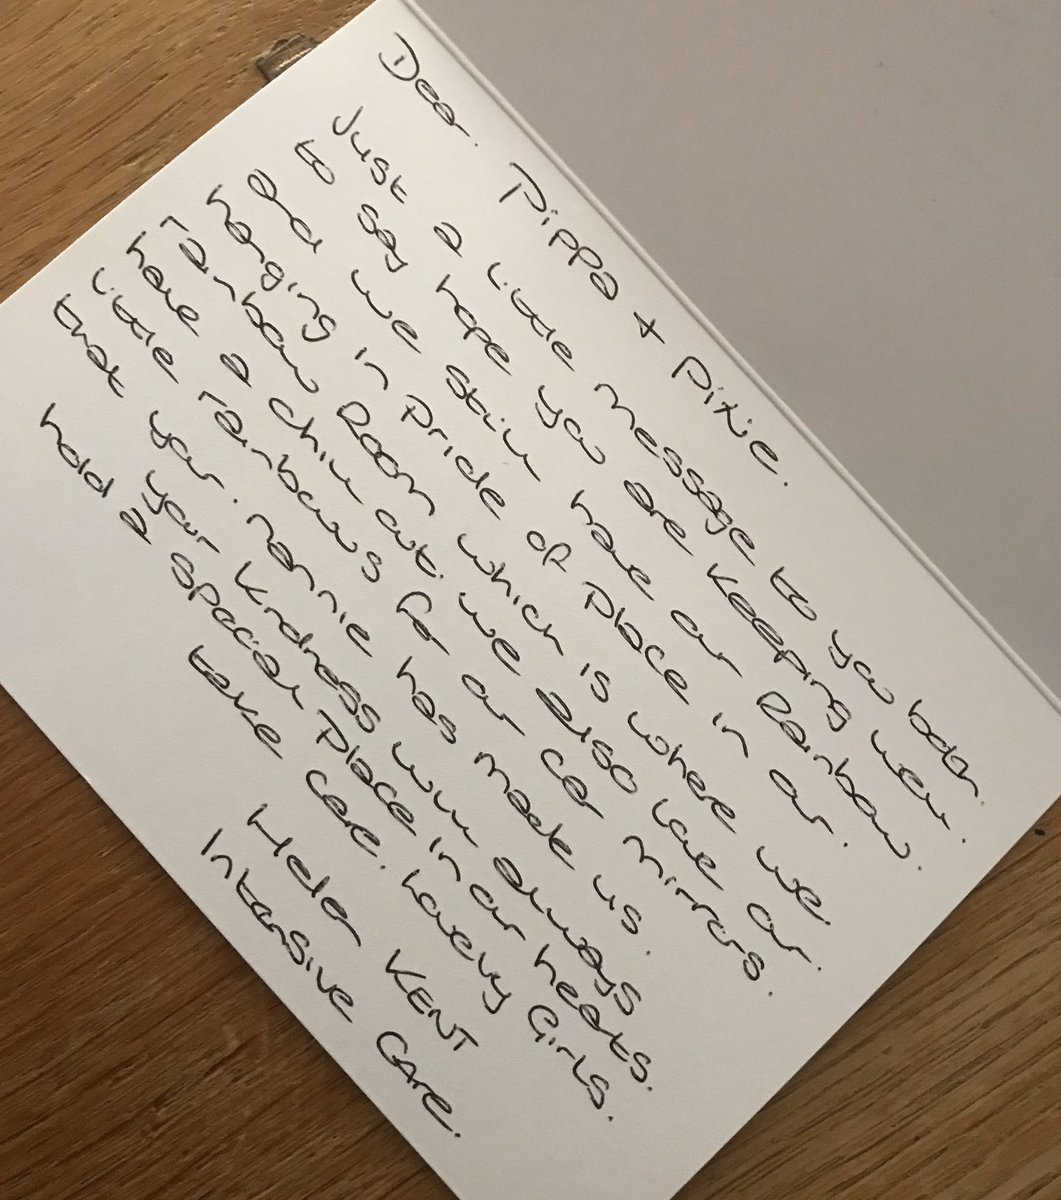 Dear. Pippa + Pixie.
Just a little message to you both.
to say hope you are keeping well.
and we still have our Rainbow.
hanging in pride of place in our.
rainbow Room which is where we.
have a chill out. we also love our.
little rainbows for our car mirrors.
that your. nannie has made us.
your kindness will always
hold a special place in our hearts.
take care. Lovely Girls.
Helen KENT
Intensive CARE.